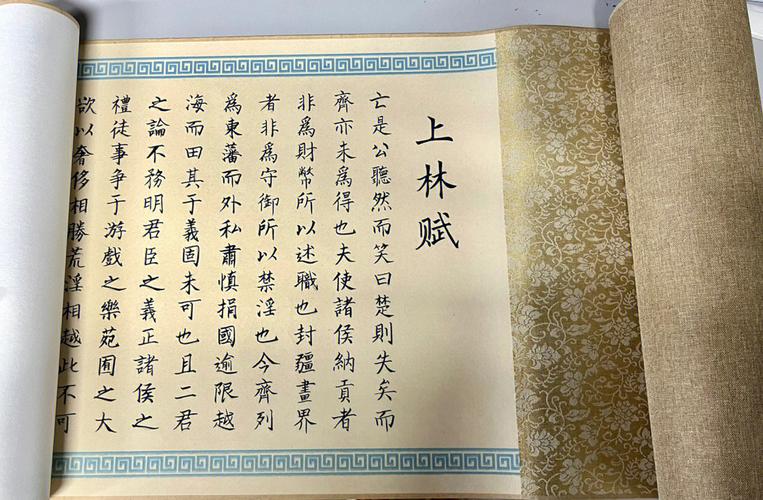 上林赋
亡是公聽然而笑曰楚則失矣而
齊亦未爲得也夫使諸侯納貢者
非爲財幣所以述職也封疆畫界
者非爲守御所以禁淫也今齊列
爲東藩而外私肅慎捐國逾限越
海而田其于義固未可也且二君
之論不務明君臣之義正諸侯之
禮徒事爭于游戲之樂苑囿之大
欲以奢侈相勝荒淫相越此不可